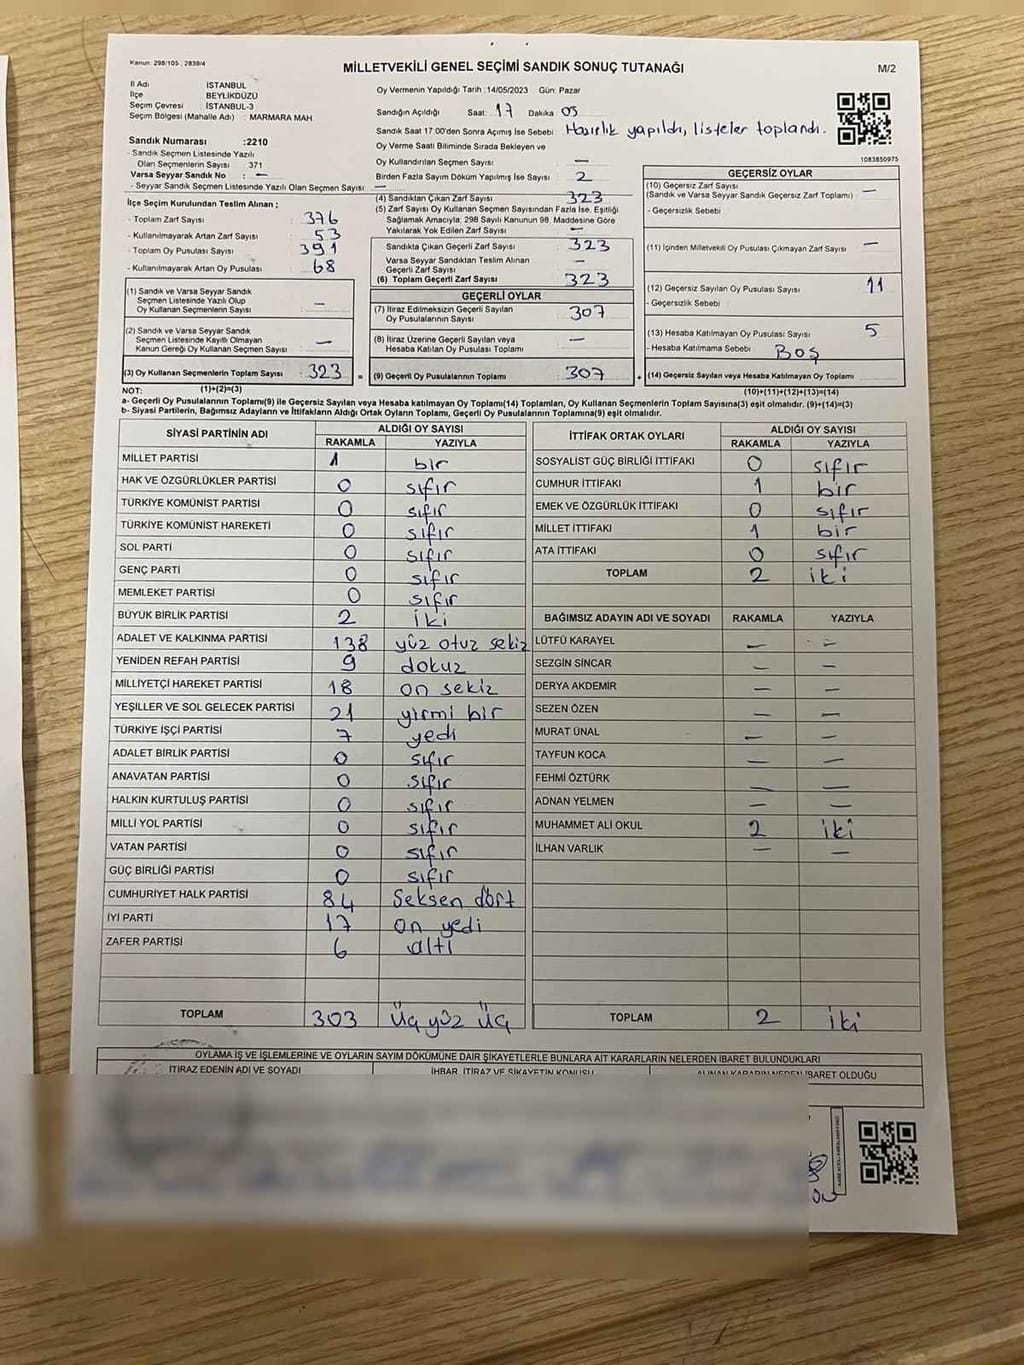 Kanun: 298/105 , 2839/4
MİLLETVEKİLİ GENEL SEÇİMİ SANDIK SONUÇ TUTANAĞI
M/2
İl Adı : İSTANBUL
İlçe : BEYLİKDÜZÜ
Seçim Çevresi : İSTANBUL-3
Seçim Bölgesi (Mahalle Adı) : MARMARA MAH
Oy Vermenin Yapıldığı Tarih :14/05/2023 Gün: Pazar
Sandığın Açıldığı Saat: 17 Dakika 05
Sandık Saat 17:00'den Sonra Açımış İse Sebebi : Hazırlık yapıldı, listeler toplandı.
Oy Verme Saati Bitiminde Sırada Bekleyen ve
Oy Kullandırılan Seçmen Sayısı : —
Birden Fazla Sayım Döküm Yapılmış İse Sayısı : 2
1083850975
Sandık Numarası :2210
- Sandık Seçmen Listesinde Yazılı
Olan Seçmenlerin Sayısı : 371
Varsa Seyyar Sandık No : —
- Seyyar Sandık Seçmen Listesinde Yazılı Olan Seçmen Sayısı : —
İlçe Seçim Kurulundan Teslim Alınan ;
- Toplam Zarf Sayısı : 376
- Kullanılmayarak Artan Zarf Sayısı : 53
- Toplam Oy Pusulası Sayısı : 391
- Kullanılmayarak Artan Oy Pusulası : 68
(1) Sandık ve Varsa Seyyar Sandık
Seçmen Listesinde Yazılı Olup
Oy Kullanan Seçmenlerin Sayısı : —
(2) Sandık ve Varsa Seyyar Sandık
Seçmen Listesinde Kayıtlı Olmayan
Kanun Gereği Oy Kullanan Seçmen Sayısı : —
(3) Oy Kullanan Seçmenlerin Toplam Sayısı : 323 =
(4) Sandıktan Çıkan Zarf Sayısı : 323
(5) Zarf Sayısı Oy Kullanan Seçmen Sayısından Fazla İse, Eşitliği
Sağlamak Amacıyla; 298 Sayılı Kanunun 98. Maddesine Göre
Yakılarak Yok Edilen Zarf Sayısı : —
Sandıkta Çıkan Geçerli Zarf Sayısı : 323
Varsa Seyyar Sandıktan Teslim Alınan
Geçerli Zarf Sayısı : —
(6) Toplam Geçerli Zarf Sayısı : 323
GEÇERLİ OYLAR
(7) İtiraz Edilmeksizin Geçerli Sayılan
Oy Pusulalarının Sayısı : 307
(8) İtiraz Üzerine Geçerli Sayılan veya
Hesaba Katılan Oy Pusulası Toplamı : —
(9) Geçerli Oy Pusulalarının Toplamı : 307 +
GEÇERSİZ OYLAR
(10) Geçersiz Zarf Sayısı
(Sandık ve Varsa Seyyar Sandık Geçersiz Zarf Toplamı) : —
- Geçersizlik Sebebi :
(11) İçinden Milletvekili Oy Pusulası Çıkmayan Zarf Sayısı : —
(12) Geçersiz Sayılan Oy Pusulası Sayısı : 11
- Geçersizlik Sebebi :
(13) Hesaba Katılmayan Oy Pusulası Sayısı : 5
- Hesaba Katılmama Sebebi : BOŞ
(14) Geçersiz Sayılan veya Hesaba Katılmayan Oy Toplamı :
NOT: (1)+(2)=(3)
(10)+(11)+(12)+(13)=(14)
a- Geçerli Oy Pusulasının Toplamı(9) ile Geçersiz Sayılan veya Hesaba katılmayan Oy Toplamı(14) Toplamları, Oy Kullanan Seçmenlerin Toplam Sayısına(3) eşit olmalıdır. (9)+(14)=(3)
b- Siyasi Partilerin, Bağımsız Adayların ve İttifakların Aldığı Ortak Oyların Toplamı, Geçerli Oy Pusulalarının Toplamına(9) eşit olmalıdır.
SİYASİ PARTİNİN ADI ALDIĞI OY SAYISI
RAKAMLA YAZIYLA
MİLLET PARTİSİ 1 bir
HAK VE ÖZGÜRLÜKLER PARTİSİ 0 sıfır
TÜRKİYE KOMÜNİST PARTİSİ 0 sıfır
TÜRKİYE KOMÜNİST HAREKETİ 0 sıfır
SOL PARTİ 0 sıfır
GENÇ PARTİ 0 sıfır
MEMLEKET PARTİSİ 0 sıfır
BÜYÜK BİRLİK PARTİSİ 2 iki
ADALET VE KALKINMA PARTİSİ 138 yüz otuz sekiz
YENİDEN REFAH PARTİSİ 9 dokuz
MİLLİYETÇİ HAREKET PARTİSİ 18 on sekiz
YEŞİLLER VE SOL GELECEK PARTİSİ 21 yirmi bir
TÜRKİYE İŞÇİ PARTİSİ 7 yedi
ADALET BİRLİK PARTİSİ 0 sıfır
ANAVATAN PARTİSİ 0 sıfır
HALKIN KURTULUŞ PARTİSİ 0 sıfır
MİLLİ YOL PARTİSİ 0 sıfır
VATAN PARTİSİ 0 sıfır
GÜÇ BİRLİĞİ PARTİSİ 0 sıfır
CUMHURİYET HALK PARTİSİ 84 Seksen dört
İYİ PARTİ 17 on yedi
ZAFER PARTİSİ 6 altı
TOPLAM 303 Üç yüz üç
İTTİFAK ORTAK OYLARI ALDIĞI OY SAYISI
RAKAMLA YAZIYLA
SOSYALİST GÜÇ BİRLİĞİ İTTİFAKI 0 sıfır
CUMHUR İTTİFAKI 1 bir
EMEK VE ÖZGÜRLÜK İTTİFAKI 0 sıfır
MİLLET İTTİFAKI 1 bir
ATA İTTİFAKI 0 sıfır
TOPLAM 2 iki
BAĞIMSIZ ADAYIN ADI VE SOYADI RAKAMLA YAZIYLA
LÜTFÜ KARAYEL — —
SEZGİN SİNCAR — —
DERYA AKDEMİR — —
SEZEN ÖZEN — —
MURAT ÜNAL — —
TAYFUN KOCA — —
FEHMİ ÖZTÜRK — —
ADNAN YELMEN — —
MUHAMMET ALİ OKUL 2 iki
İLHAN VARLIK — —
TOPLAM 2 iki
OYLAMA İŞ VE İŞLEMLERİNE VE OYLARIN SAYIM DÖKÜMÜNE DAİR ŞİKAYETLERLE BUNLARA AİT KARARLARIN NELERDEN İBARET BULUNDUKLARI
İTİRAZ EDENİN ADI VE SOYADI İHBAR, İTİRAZ VE ŞİKAYETİN KONUSU ALINAN KARARIN NEDEN İBARET OLDUĞU